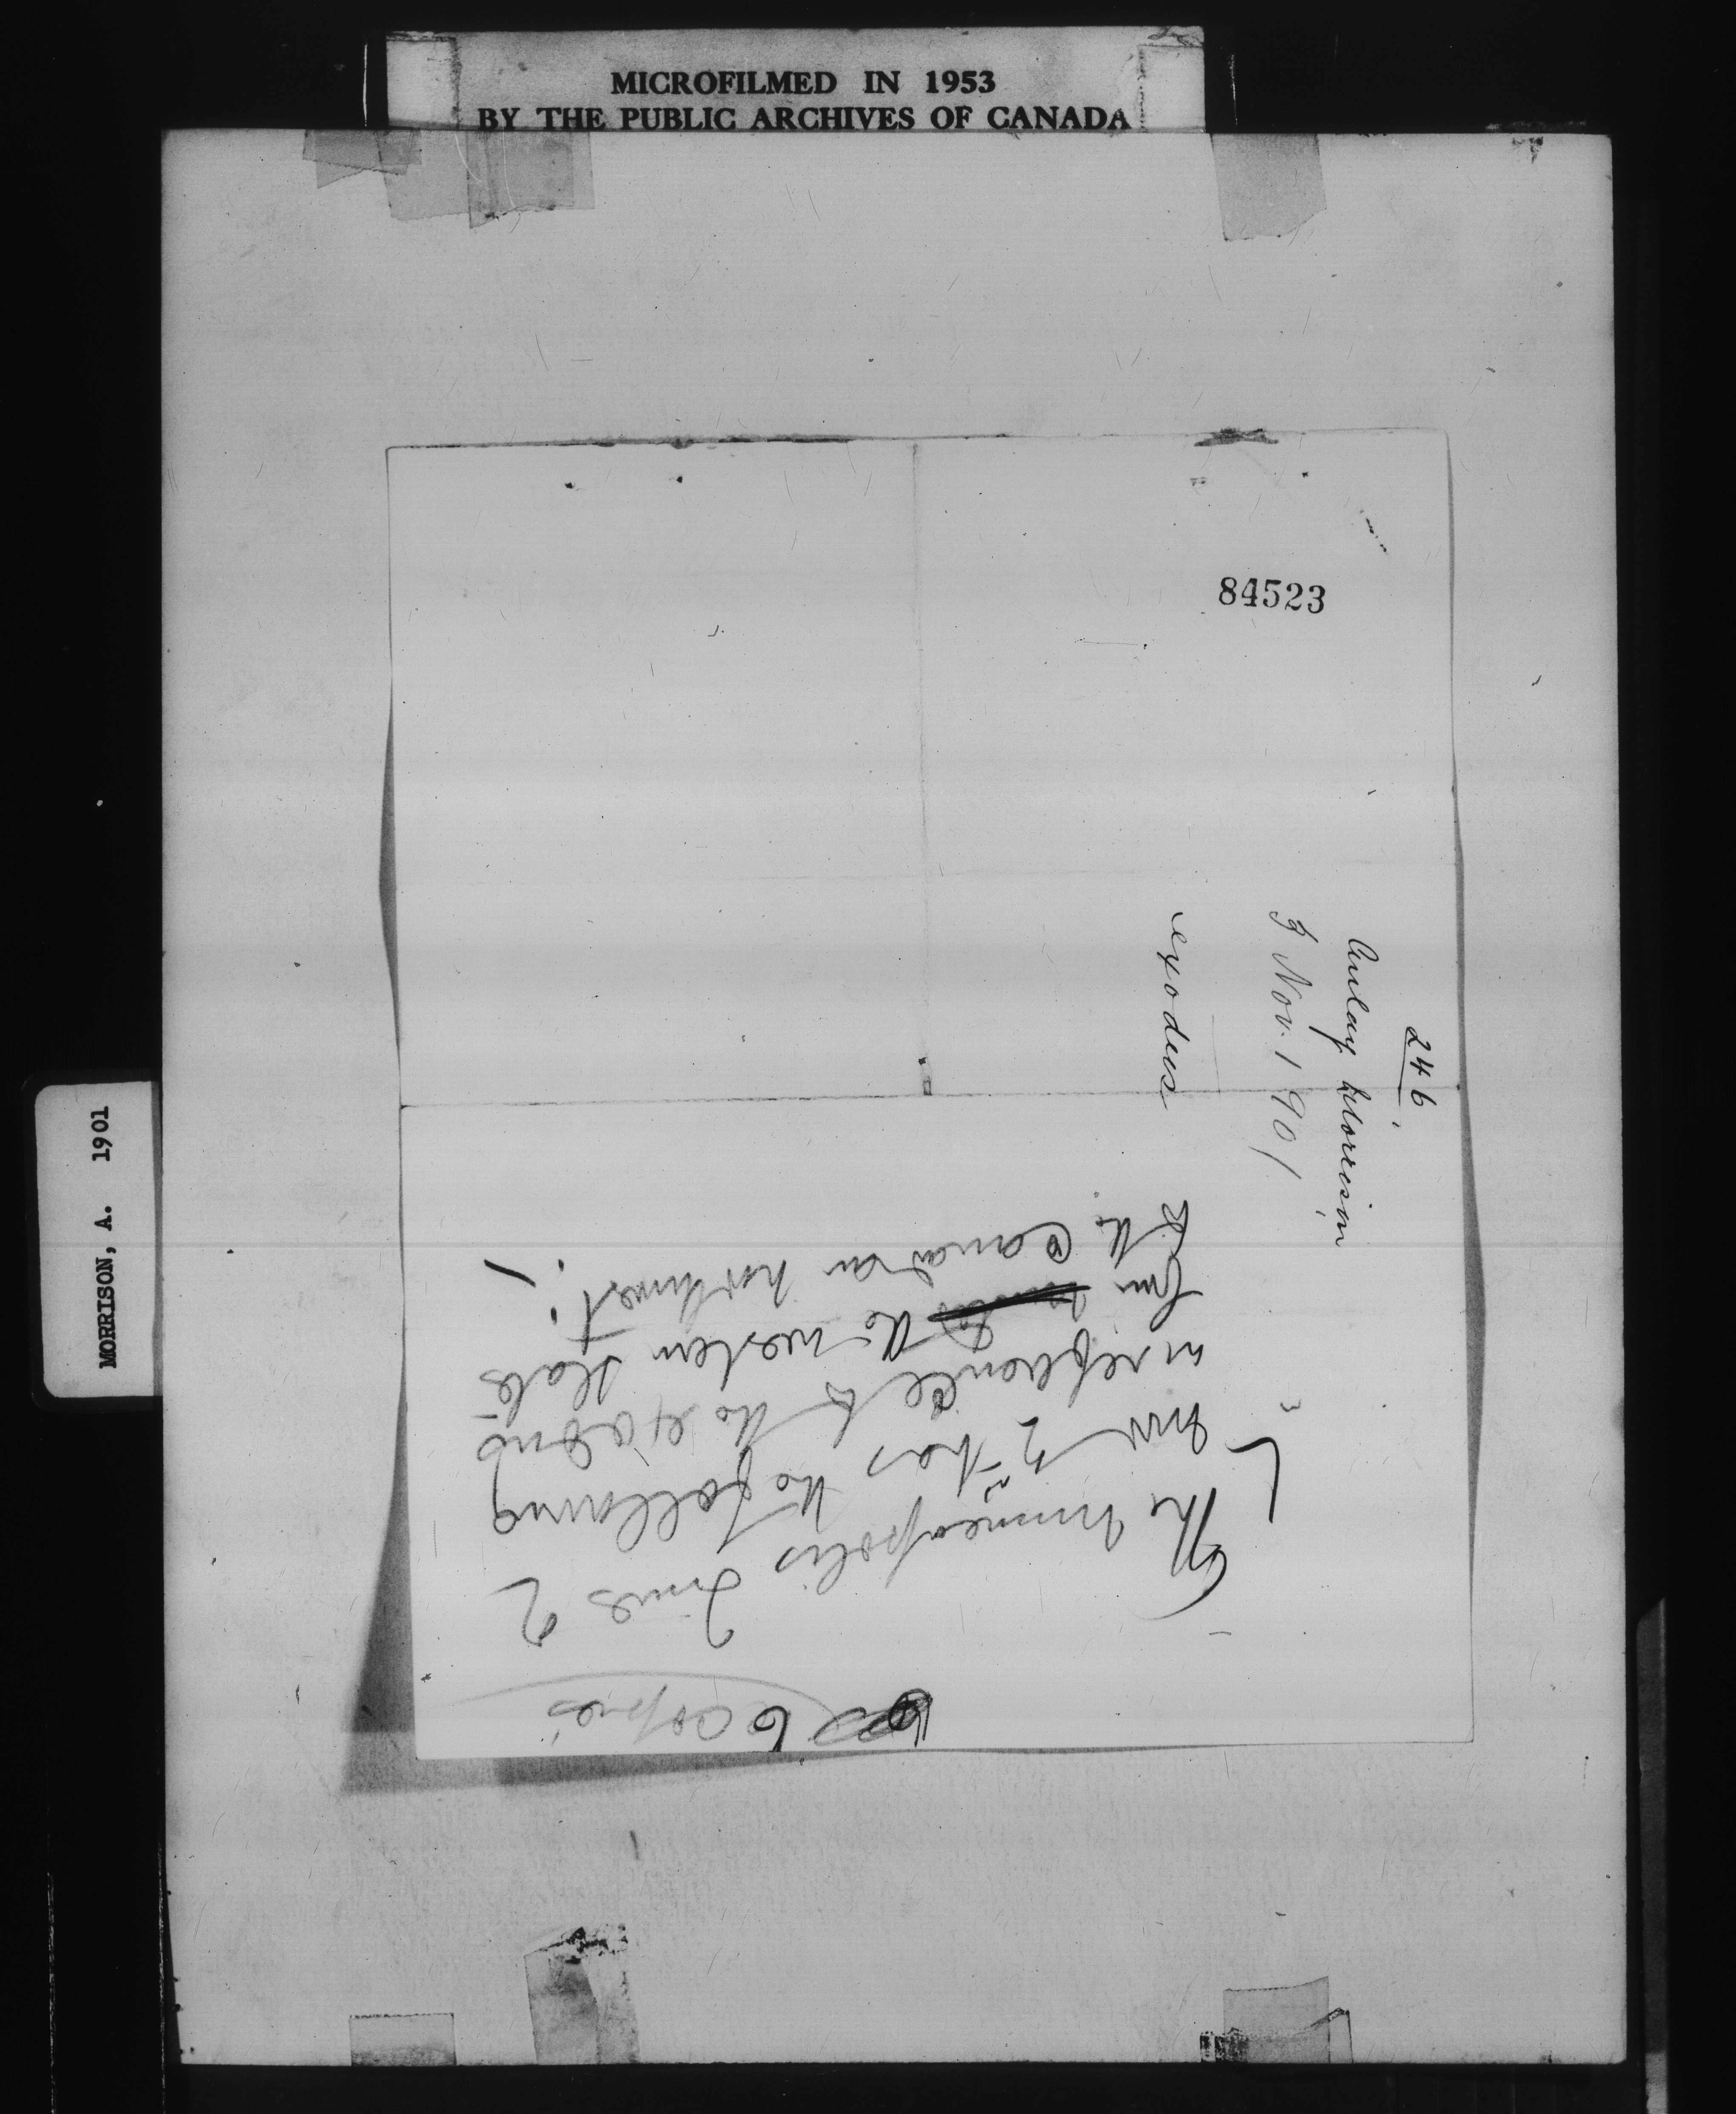 MICROFILMED IN 1953
BY THE PUBLIC ARCHIVES OF CANADA
MORRISON, A. 1901
84523
246
Aulay Morrison
3 Nov. 1901
exodus
6 copies
The Minneapolis Times of
Nov 2nd has the following
in reference to the exodus
from the western states
to the Canadian northwest: